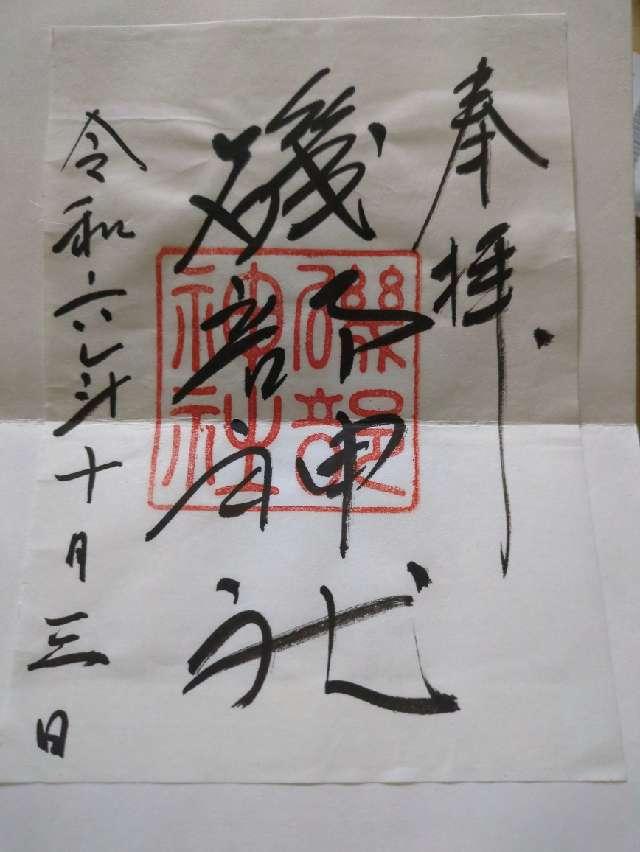 奉拝
磯部神社
令和六年十月三日
磯部神社